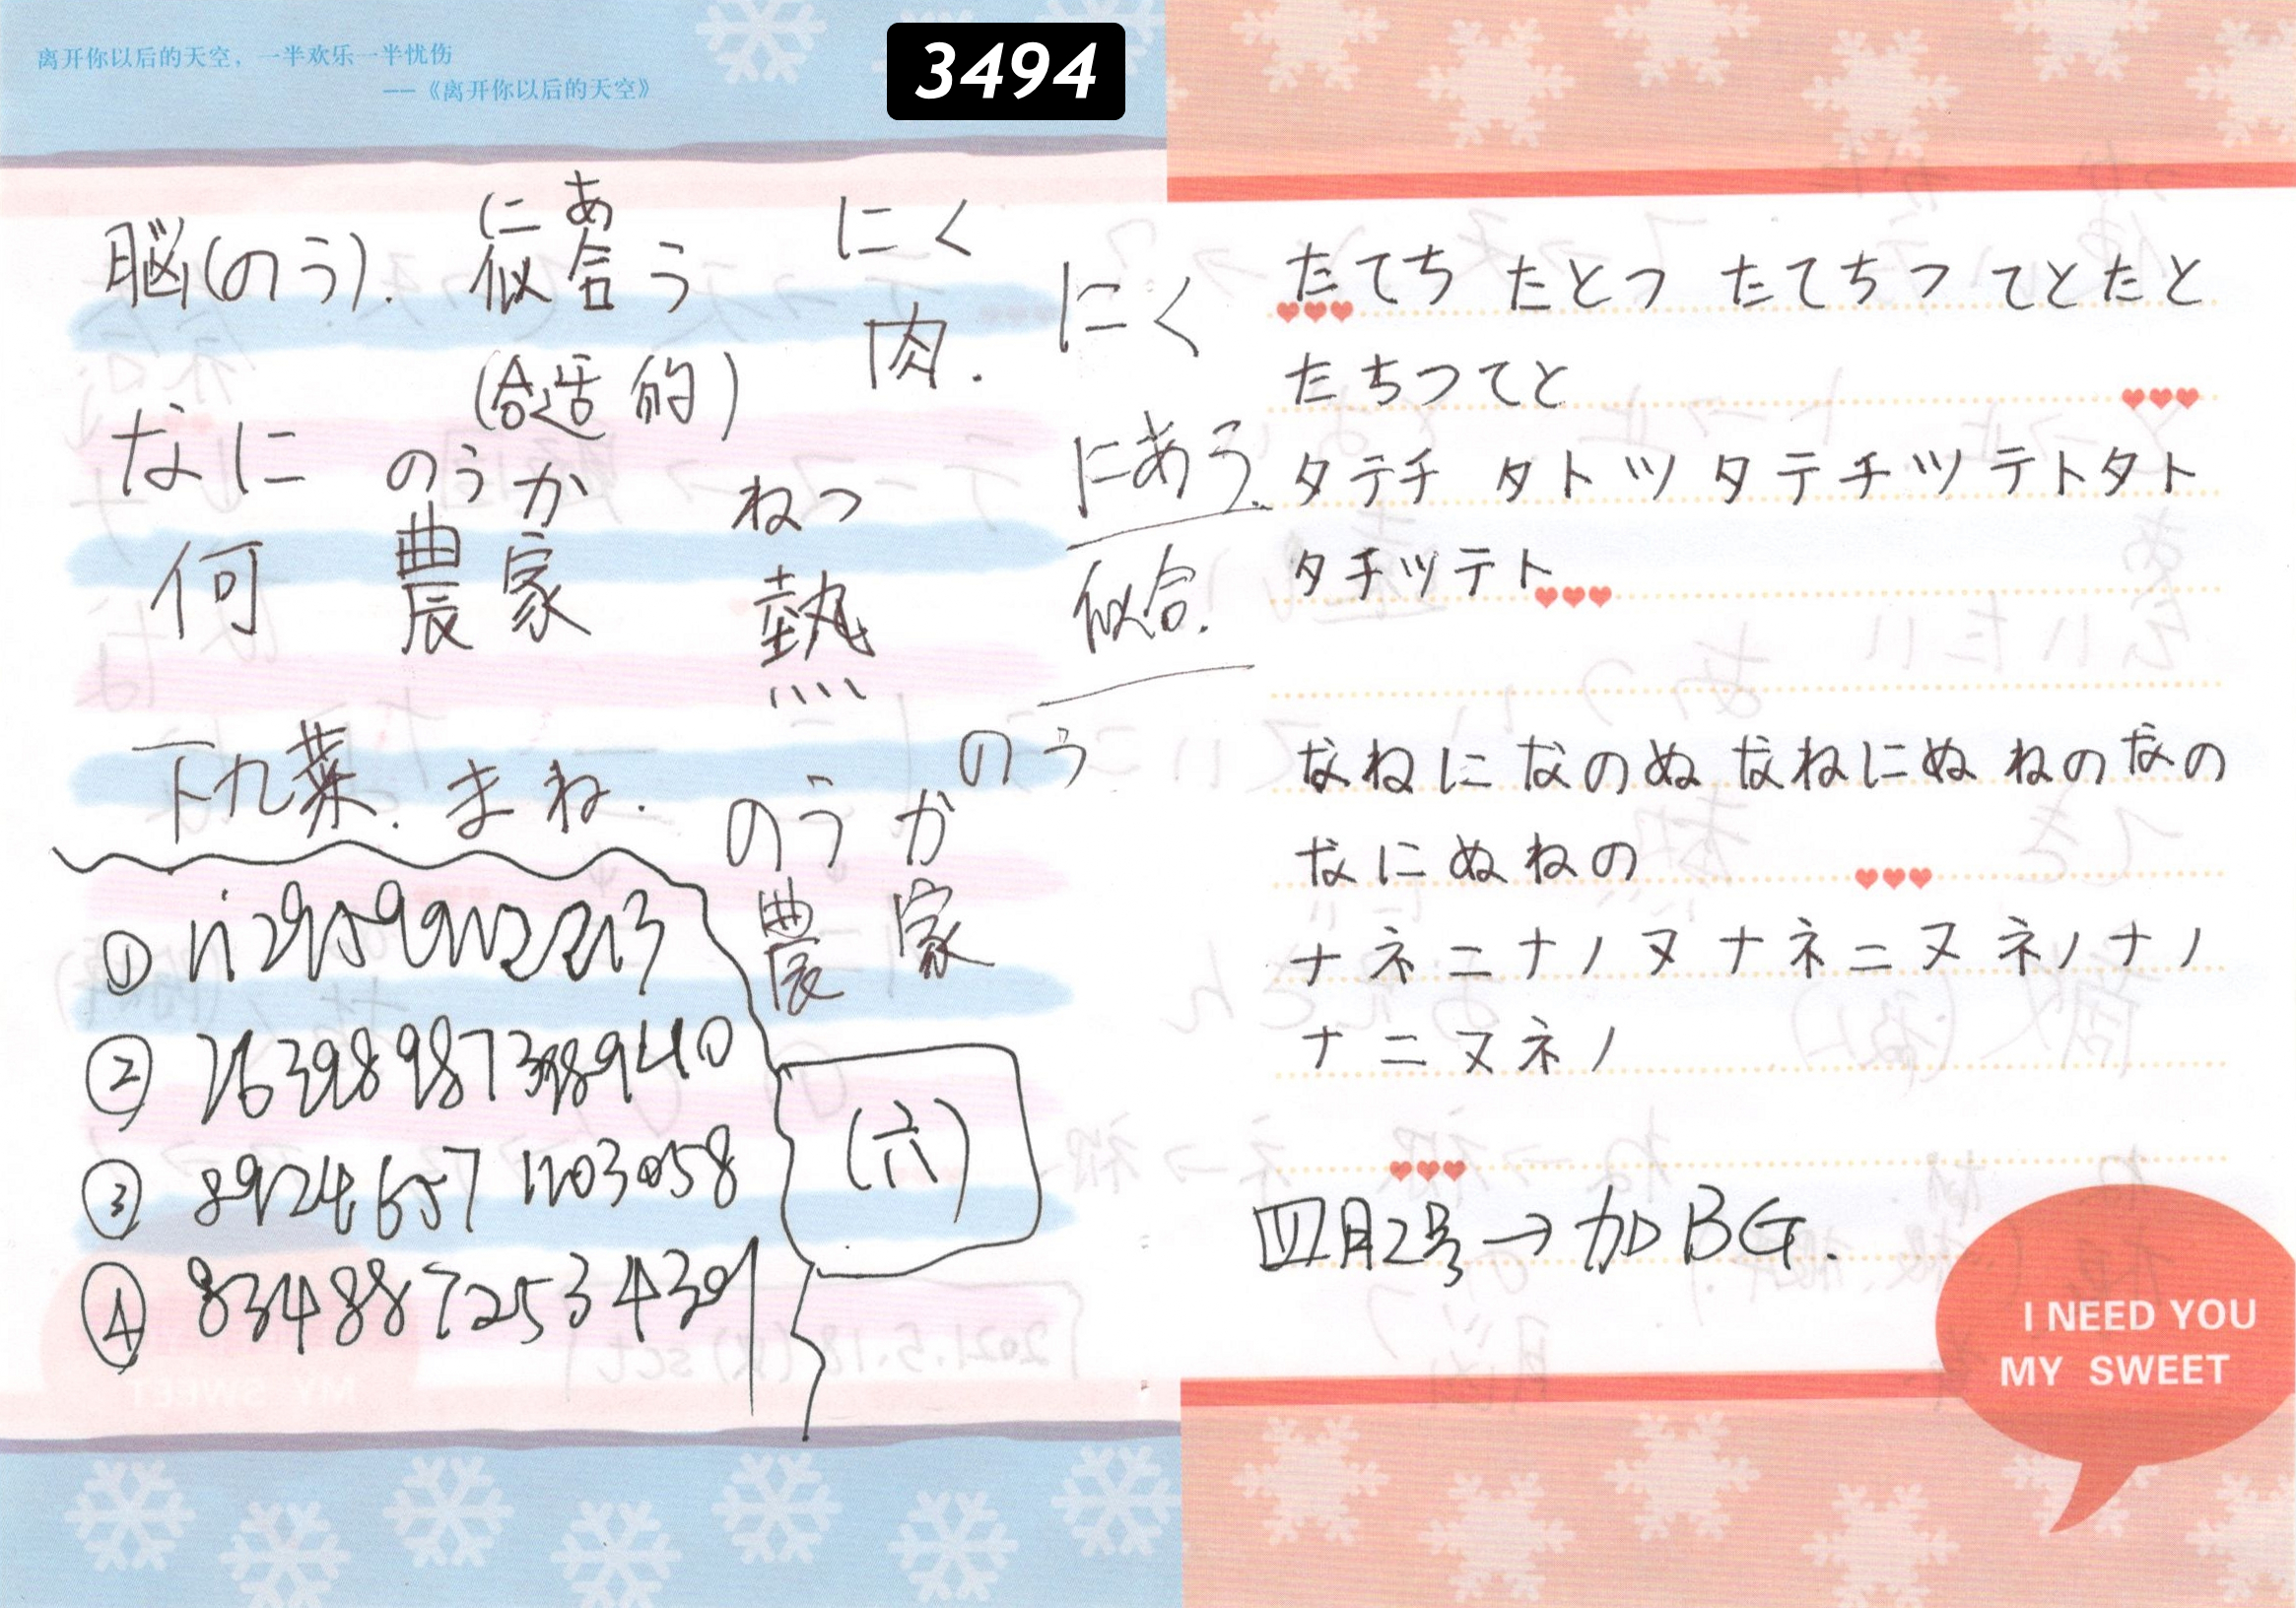 3494
离开你以后的天空，一半欢乐一半忧伤
——《离开你以后的天空》
にあ
にく
脳(のう). 似合う
肉.
にく
(合适的)
なに
のうか
ねつ
何
農家
熱
にあう.
似合.
下九菜. まね.
のう
のうか
農家
①
② 7639898738940
③ 8924657 1103058
④ 8348872534391
(六)
たてち たとつ たてちつ てとたと
たちつてと
タテチ タトツ タテチツ テトタト
タチツテト
なねに なのぬ なねにぬ ねのなの
なにぬねの
ナネニ ナノヌ ナネニヌ ネノナノ
ナニヌネノ
四月2号→加BG.
I NEED YOU
MY SWEET